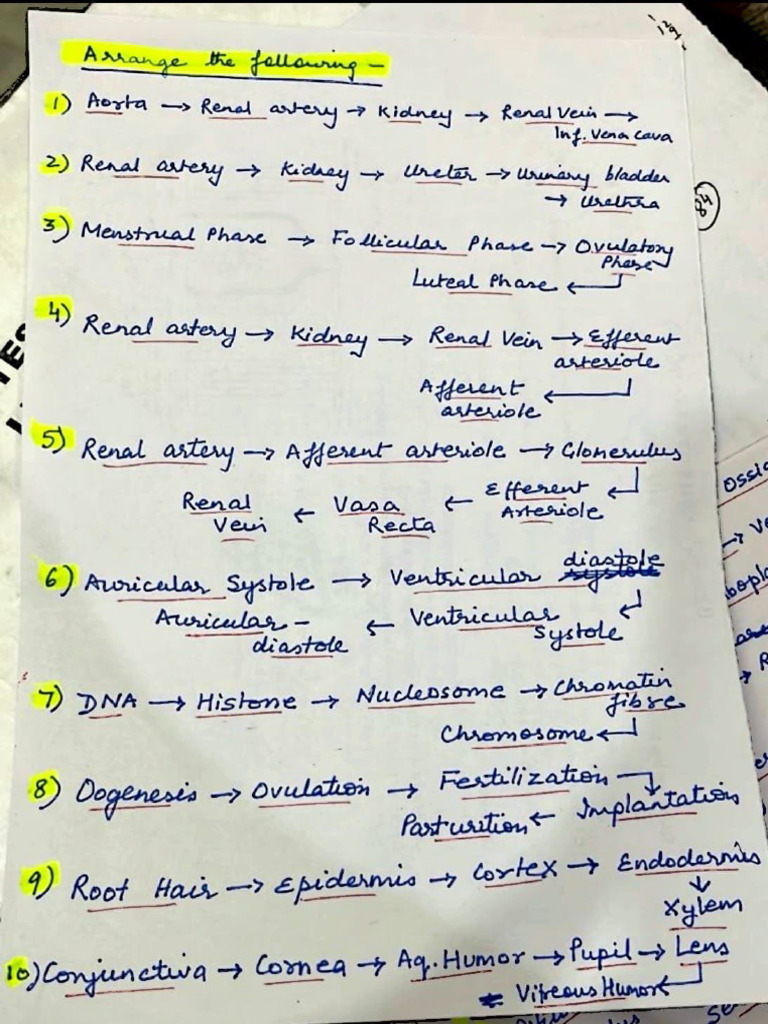 Arrange the following –
1) Aorta → Renal artery → Kidney → Renal Vein →
Inf. Vena Cava
2) Renal artery → Kidney → Ureter → Urinary bladder
→ Urethra
84
3) Menstrual Phase → Follicular Phase → Ovulatory
Phase
Luteal Phase ←
4) Renal artery → Kidney → Renal Vein → Efferent
arteriole
Afferent ←
arteriole
5) Renal artery → Afferent arteriole → Glomerulus
Renal ← Vasa ← Efferent ←
Vein Recta Arteriole
6) Auricular Systole → Ventricular diastole
Auricular – ← Ventricular ←
diastole Systole
7) DNA → Histone → Nucleosome → Chromatin
fibre
Chromosome ←
8) Oogenesis → Ovulation → Fertilization
Parturition ← Implantation
9) Root Hair → Epidermis → Cortex → Endodermis
↓
Xylem
10) Conjunctiva → Cornea → Aq. Humor → Pupil → Lens
Vitreous Humor ←